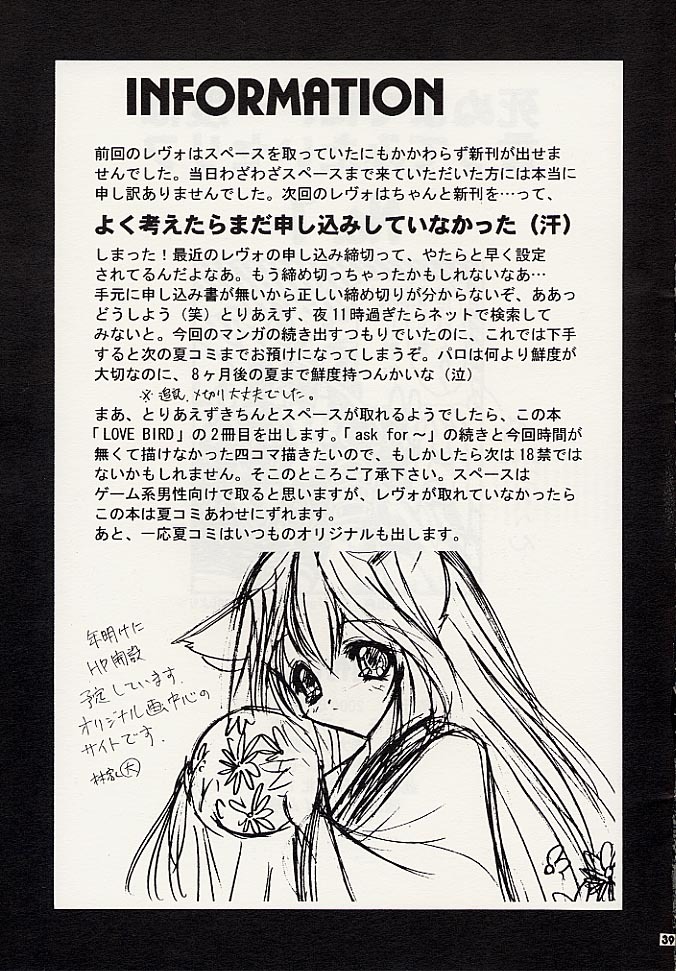 INFORMATION
前回のレヴォはスペースを取っていたにもかかわらず新刊が出せま
せんでした。当日わざわざスペースまで来ていただいた方には本当に
申し訳ありませんでした。次回のレヴォはちゃんと新刊を…って、
よく考えたらまだ申し込みしていなかった（汗）
しまった！最近のレヴォの申し込み締切って、やたらと早く設定
されてるんだよなあ。もう締め切っちゃったかもしれないなあ…
手元に申し込み書が無いから正しい締め切りが分からないぞ、ああっ
どうしよう（笑）とりあえず、夜11時過ぎたらネットで検索して
みないと。今回のマンガの続き出すつもりでいたのに、これでは下手
すると次の夏コミまでお預けになってしまうぞ。パロは何より鮮度が
大切なのに、8ヶ月後の夏まで鮮度持つんかいな（泣）
※追記 〆切り大丈夫でした。
まあ、とりあえずきちんとスペースが取れるようでしたら、この本
「LOVE BIRD」の2冊目を出します。「ask for～」の続きと今回時間が
無くて描けなかった四コマ描きたいので、もしかしたら次は18禁では
ないかもしれません。そこのところご了承下さい。スペースは
ゲーム系男性向けで取ると思いますが、レヴォが取れていなかったら
この本は夏コミあわせにずれます。
あと、一応夏コミはいつものオリジナルも出します。
年明けに
HP開設
予定しています。
オリジナル画中心の
サイトです。
39